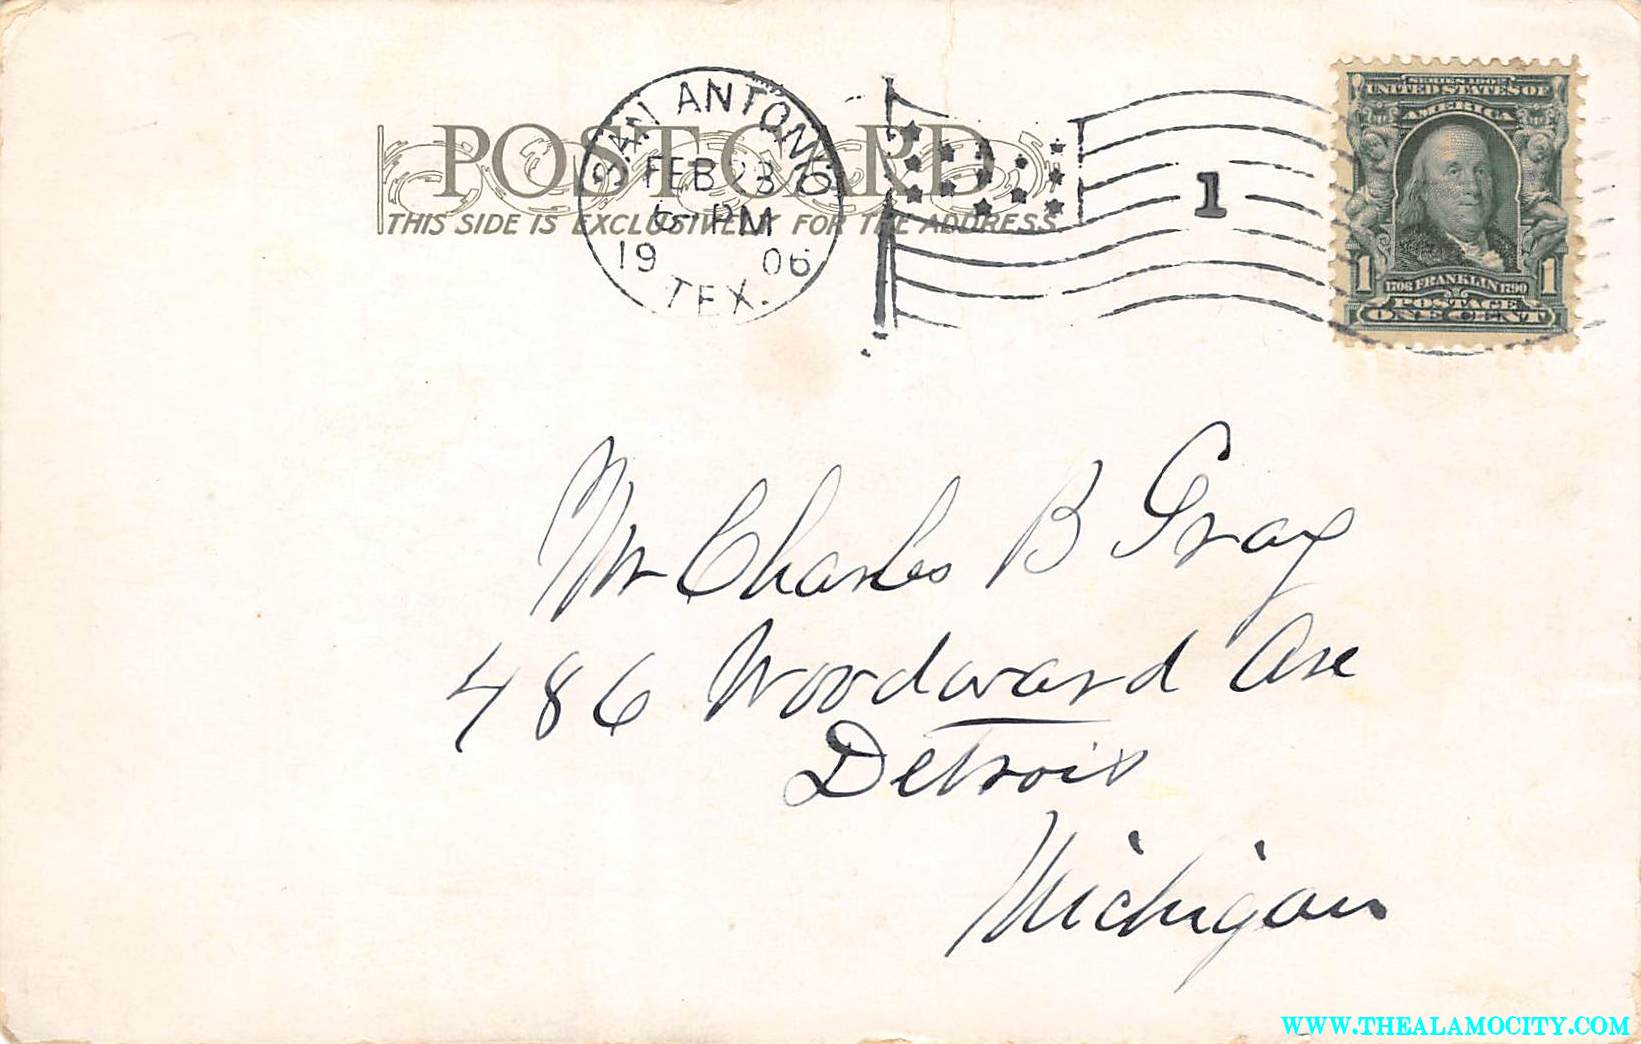 POST CARD
THIS SIDE IS EXCLUSIVELY FOR THE ADDRESS
SAN ANTONIO
FEB 23
6 - PM
19 06
TEX.
1
SERIES 1902
UNITED STATES OF
AMERICA
1 1
1706 FRANKLIN 1790
POSTAGE
ONE CENT
Mr Charles B Gray
486 Woodward Ave
Detroit
Michigan
WWW.THEALAMOCITY.COM